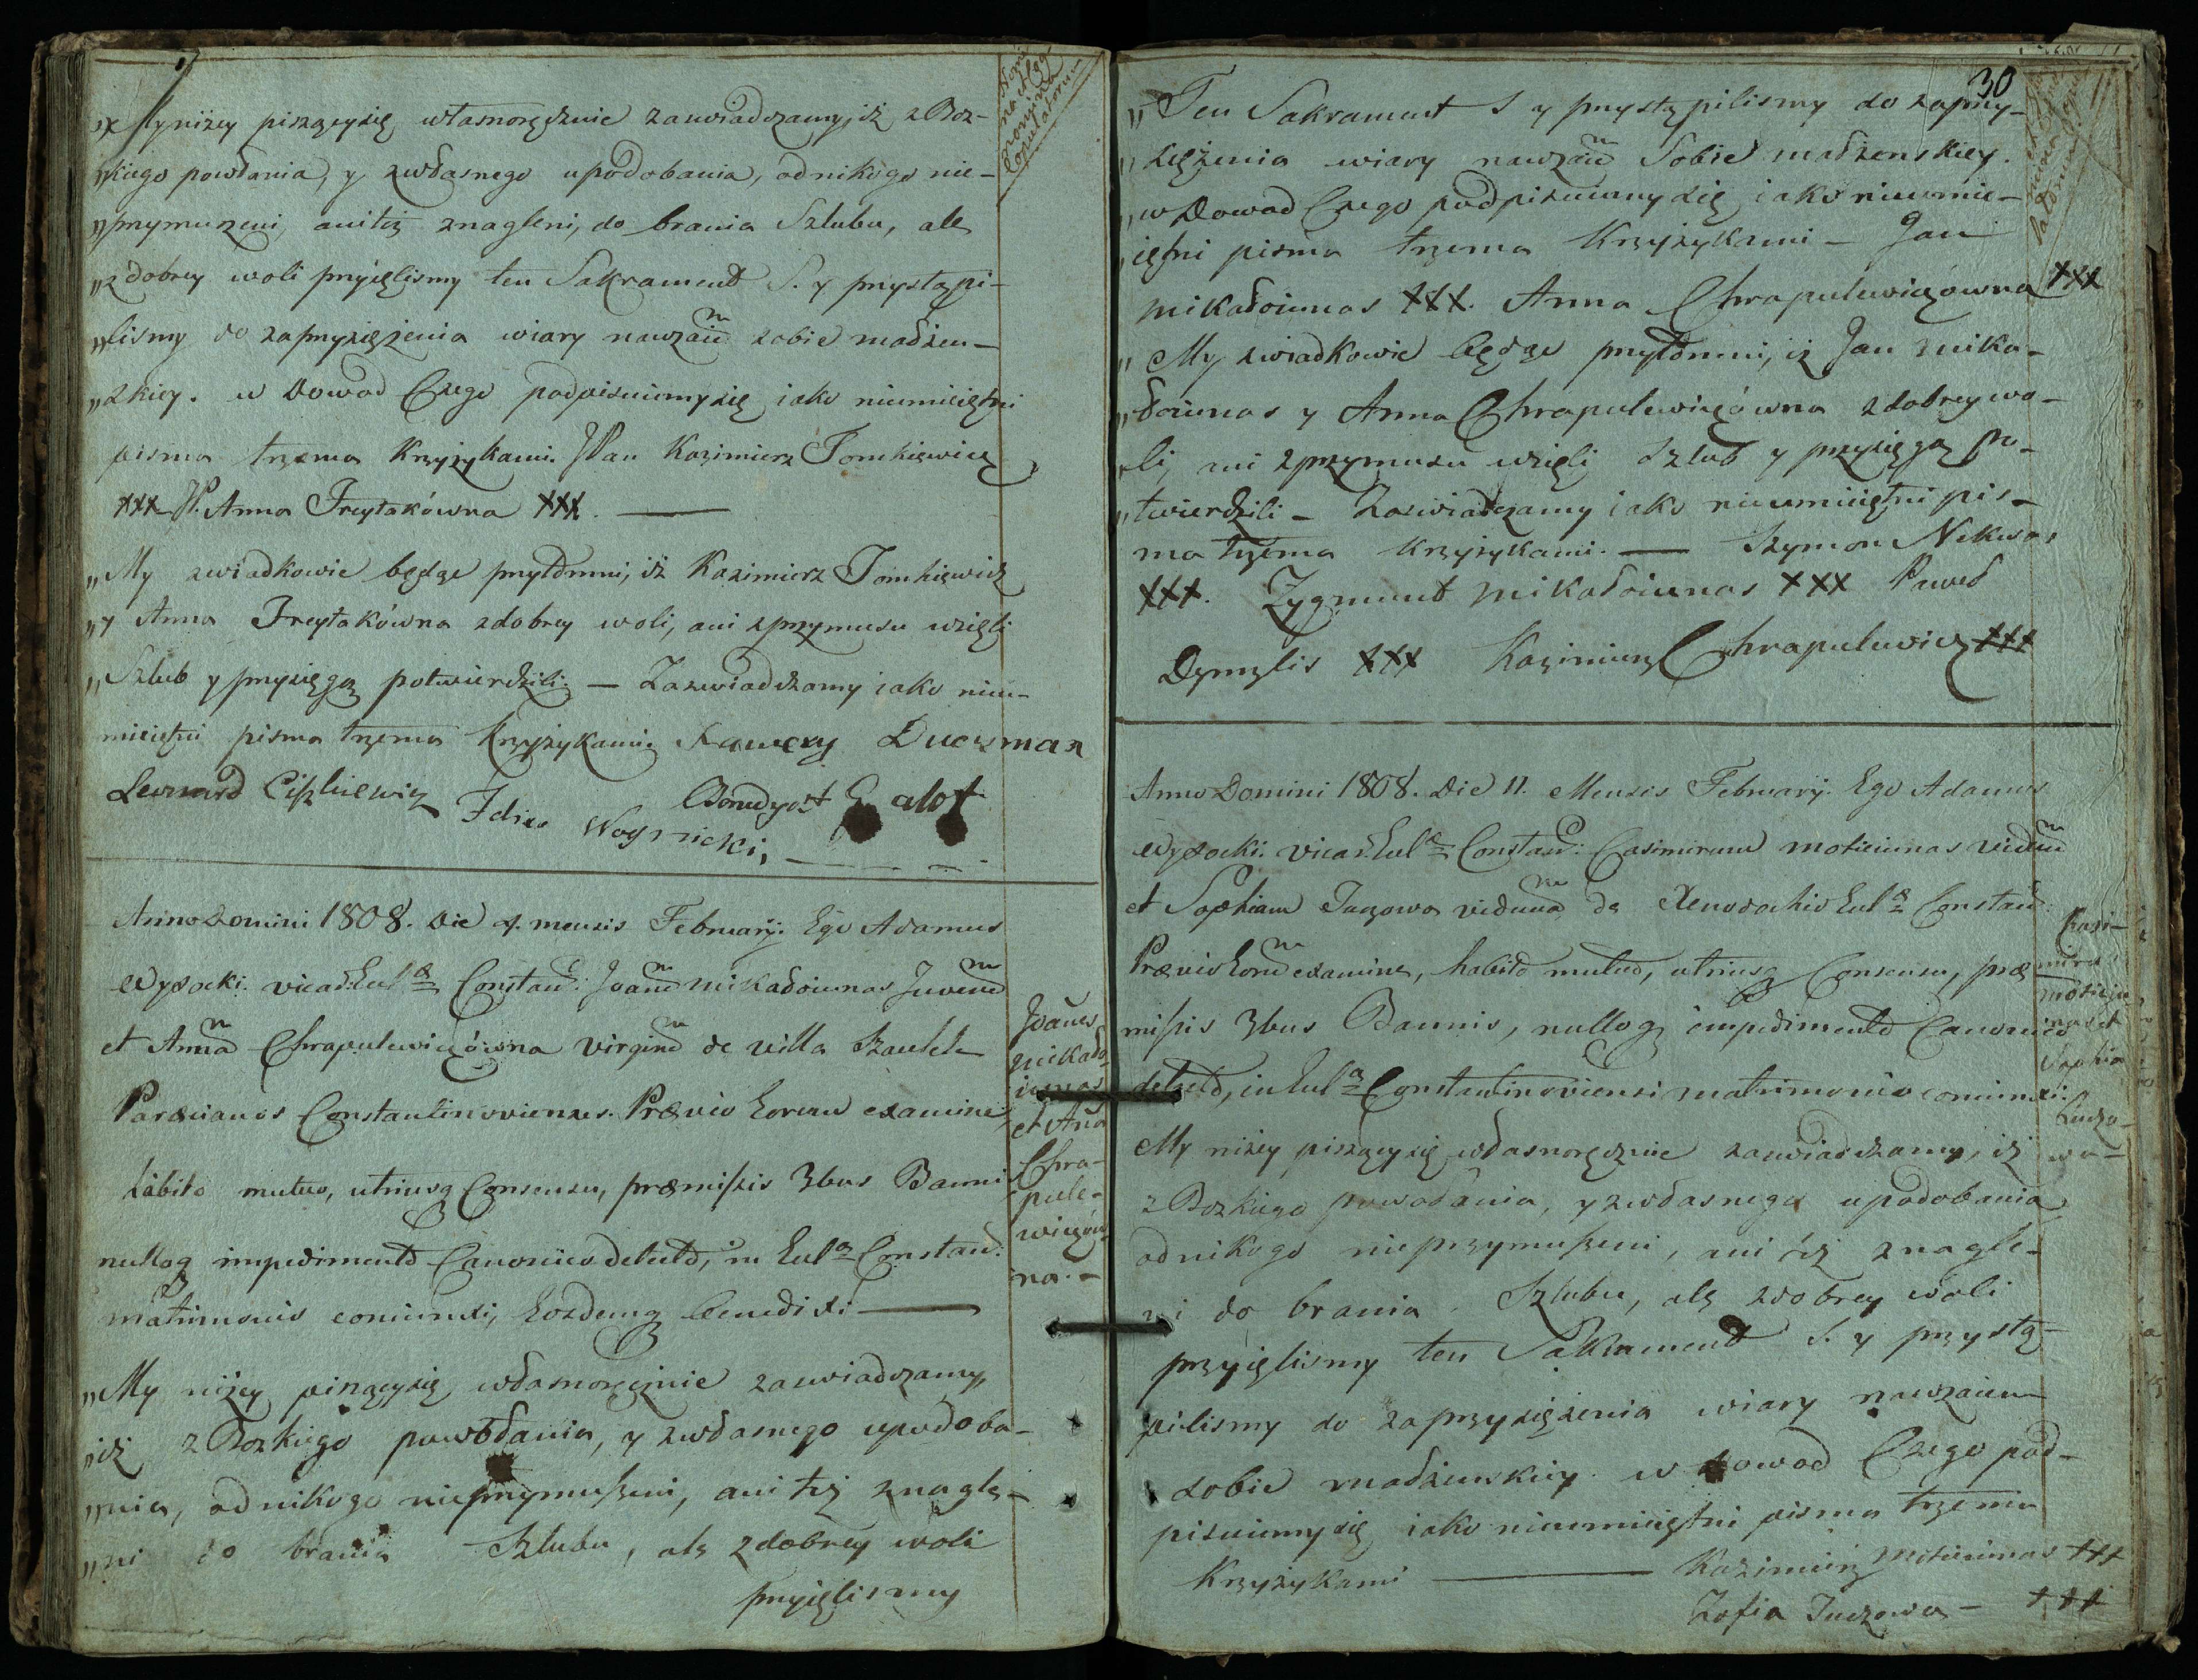 „My niżey pisząćysię własnoręcznie zaswiadczamy, iż z Boz-
„kiego powłania, y zwłasnego upodobania, odnikogo nie-
„przymuszeni, anitiż znagleni, do brania Szlubu, ale
„zdobrey woli przyięlismy ten Sakrament S. y przystąpi-
„lismy do zaprzysiężenia wiary nawzaiem sobie małżen-
„skiey. w Dowod Czego podpisuiemysię iako nieumieiętni
pisma trzema Krzyżykami. JPan Kazimierz Tomkiewicz
xxx JP. Anna Freytakówna xxx. —
„My swiadkowie będąc przytomni, iż Kazimierz Tomkiewicz
„y Anna Freytakówna zdobrey woli, ani zprzymusu wzięli
„Szlub y przysięgą potwierdzili — Zaswiadczamy iako nieu-
mieiętni pisma trzema Krzyżykami. Xawery Ducyman
Leonard Ciszkiewicz Benedyckt Galot
Felix Woynicki,
Nomi
na et Cog
nomina
Copulatorum
Anno Domini 1808. Die 4. mensis Februarij. Ego Adamus
Wysocki. vicar. Eccl. Constan: Joanem Mikałoiunas Juvenem
et Annam Chrapulewiczówna Virginem de villa Szaulele
Paræcianos Constantinovienses. Prævio Eorum examine,
habito mutuo, utriusq Consensu, præmissis 3bus Banni
nulloq impedimento Canonico detecto, in Eccla Constan:
matrimonio coniunxi, Eosdemq benedixi —
Joanes
Mikało-
iunas
et Ana
Chra-
pule-
wiczów
na. -
„My niżey piszącysię własnoręcznie zaswiadczamy,
„iż z Bozkiego powołania, y zwłasnego upodoba-
„nia, od nikogo nieprzymuszeni, ani też znagle-
„ni do brania Szlubu, ale zdobrey woli
przyięlismy
30
„Ten Sakrament S y przystąpilismy do zaprzy-
„siężenia wiary nawzaiem Sobie małżenskiey.
„w Dowod Czego podpisuiemysię iako nieumie-
„iętni pisma trzema Krzyżykami — Jan
Mikałoiunas xxx. Anna Chrapulewiczówna xxx
„My swiadkowie będąc przytomni, iż Jan Mika-
„łoiunas y Anna Chrapulewiczówna zdobrey wo-
„li, ani zprzymusu wzięli Szlub y przysięgą po-
„twierdzili — Zaswiadczamy iako nieumieiętni pis-
ma trzema krzyżykami. — Szymon Nekwas
xxx. Zygmunt Mikałoiunas xxx Paweł
Dymzlis xxx Kazimierz Chrapulewicz xxx
Anno Domini 1808. Die 11. Mensis Februarij. Ego Adamus
Wysocki. vicar. Eccl. Constan: Casimirum Motieiunas viduum
et Sophiam Juczowa viduam de Xenodochio Eccla Constan:
Prævio Eorum examine, habito mutuo, utriusq Consensu, præ
missis 3bus Bannis, nulloq impedimento Canonico
detecto, in Eccla Constantinoviensi matrimonio coniunxi.
Kasi-
mirus
Motieju
nas et
Sophia
Juczo-
wa-
My niżey piszącysię własnoręcznie zaswiadczamy, iż
z Bozkiego powołania, y zwłasnego upodobania
odnikogo nieprzymuszeni, ani też znagle-
ni do brania Szlubu, ale zdobrey woli
przyięlismy ten Sakrament S. y przystą-
pilismy do zaprzysiężenia wiary nawzaiem
sobie małżenskiey. w dowod Czego pod-
pisuiemysię iako nieumieiętni pisma trzema
Krzyżykami — Kazimierz Motieiunas xxx
Zofia Juczowa — xxx